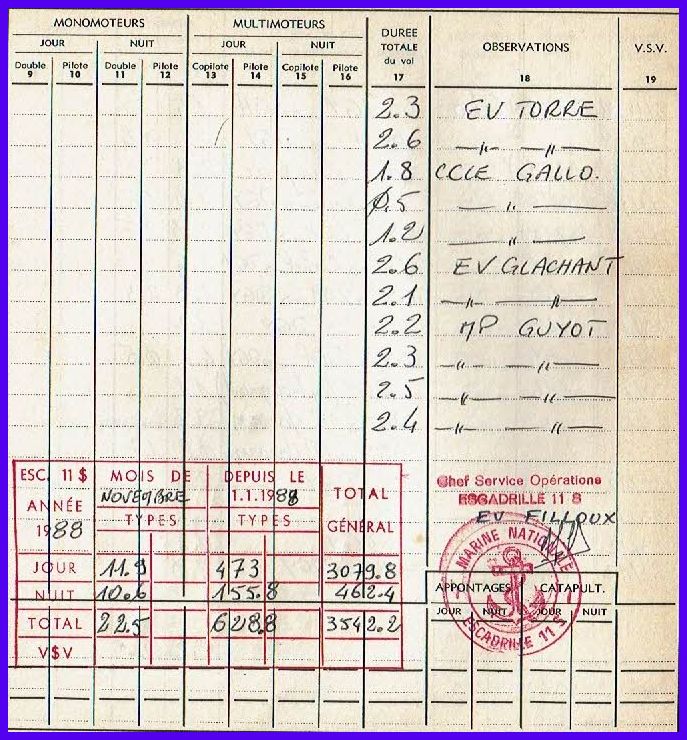 MONOMOTEURS MULTIMOTEURS DUREE TOTALE du vol OBSERVATIONS V.S.V.
JOUR NUIT JOUR NUIT
Double Pilote Double Pilote Copilote Pilote Copilote Pilote
9 10 11 12 13 14 15 16 17 18 19
2.3 EV TORRE
2.6 —〃— —〃—
1.8 CCLE GALLO.
Ø.5 — 〃 —
1.2 — 〃 —
2.6 EV GLACHANT
2.1 —〃— —〃—
2.2 MP GUYOT
2.3 —〃— —〃—
2.5 —〃— —〃—
2.4 —〃— —〃—
ESC. 11 S MOIS DE DEPUIS LE TOTAL GÉNÉRAL
ANNÉE NOVEMBRE 1.1.1988
1988 TYPES TYPES
JOUR 11.9 473 3079.8
NUIT 10.6 155.8 462.4
TOTAL 22.5 628.8 3542.2
V$V
Chef Service Opérations
ESCADRILLE 11 S
EV FILLOUX
MARINE NATIONALE
ESCADRILLE 11 S
APPONTAGES CATAPULT.
JOUR NUIT JOUR NUIT